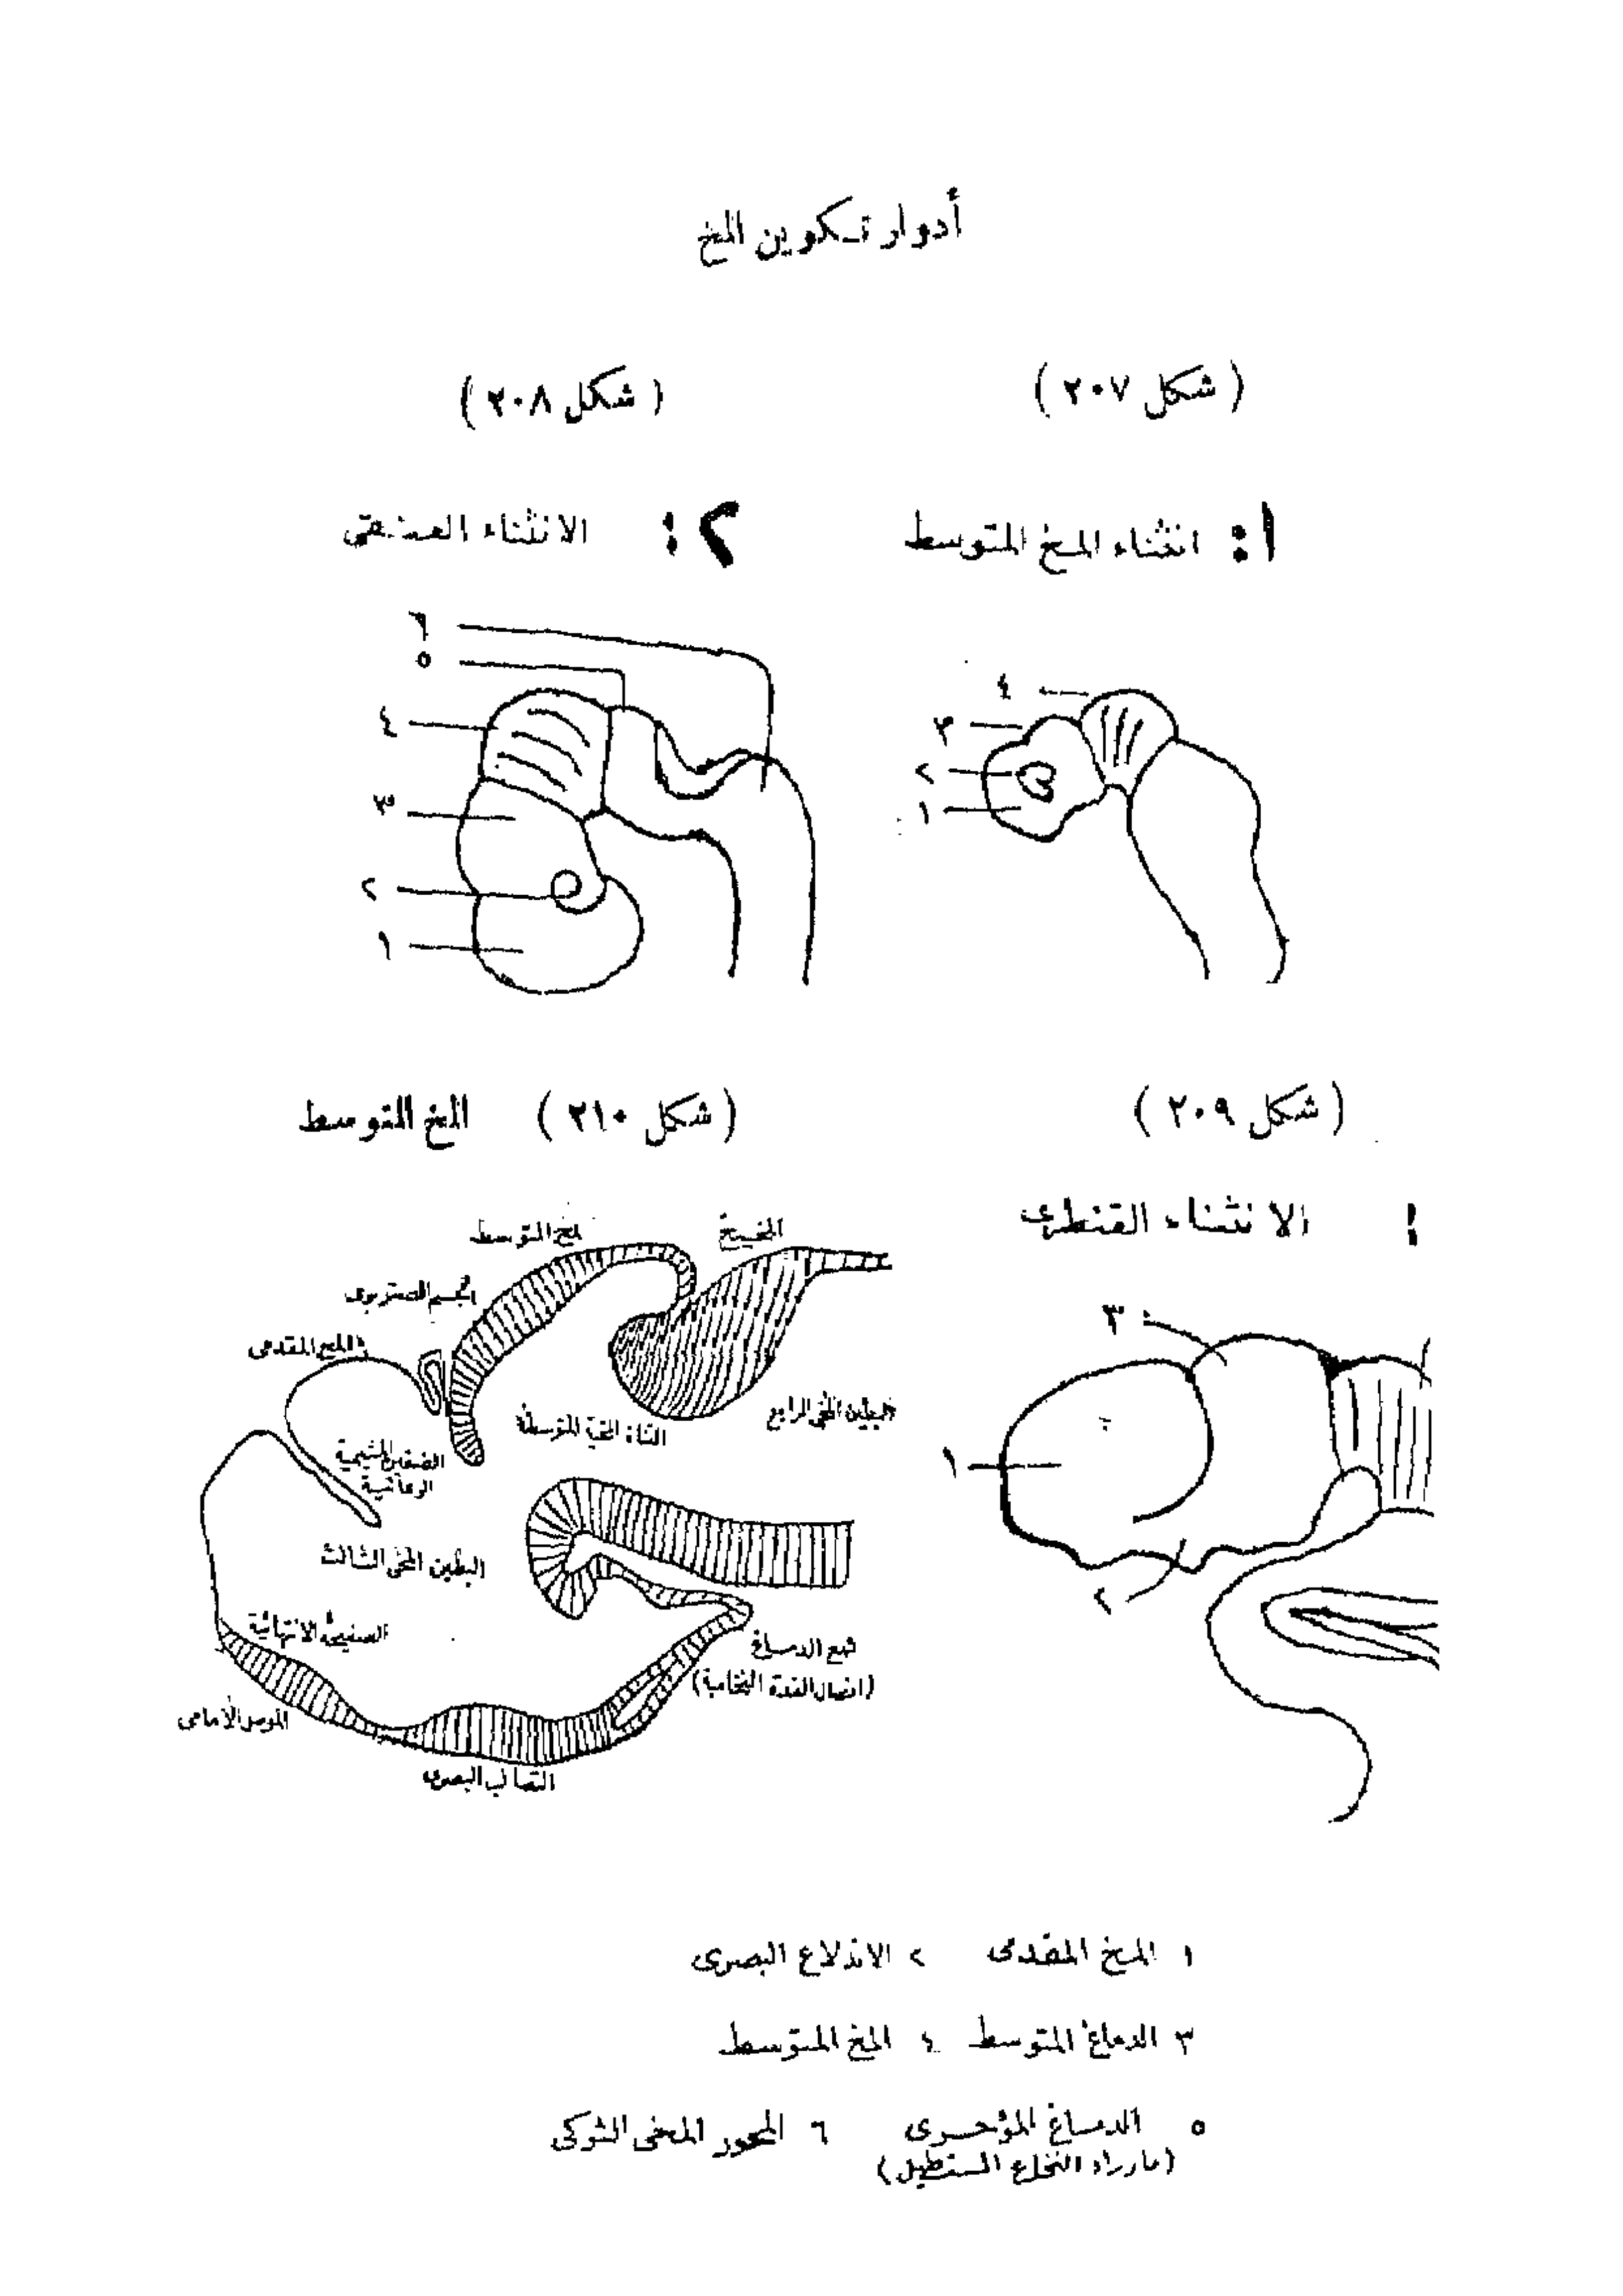 أدوار تكوين المخ
( شكل ٢٠٧ )
( شكل ٢٠٨ )
١: انثناء المخ المتوسط
٢: الانثناء العنقى
٤
٣
٢
١
٦
٥
٤
٣
٢
١
( شكل ٢٠٩ )
( شكل ٢١٠ ) المخ المتوسط
الانثناء القنطرى
٣
١
٢
المخيخ
المخ المتوسط
الجسم الصنوبرى
المخ المقدمى
البطين المخى الرابع
القناة المخية المتوسطة
الضفيرة المشيمية
الوعائية
البطين المخى الثالث
الصفيحة الانتهائية
قمع الدماغ
(اتصال الغدة النخامية)
الأمامى
التصالب البصرى
١ المخ المقدمى ٢ الاندلاع البصرى
٣ الدماغ المتوسط ٤ المخ المتوسط
٥ الدماغ المؤخرى ٦ المحور المخى الشوكى
(ماوراء النخاع المستطيل)